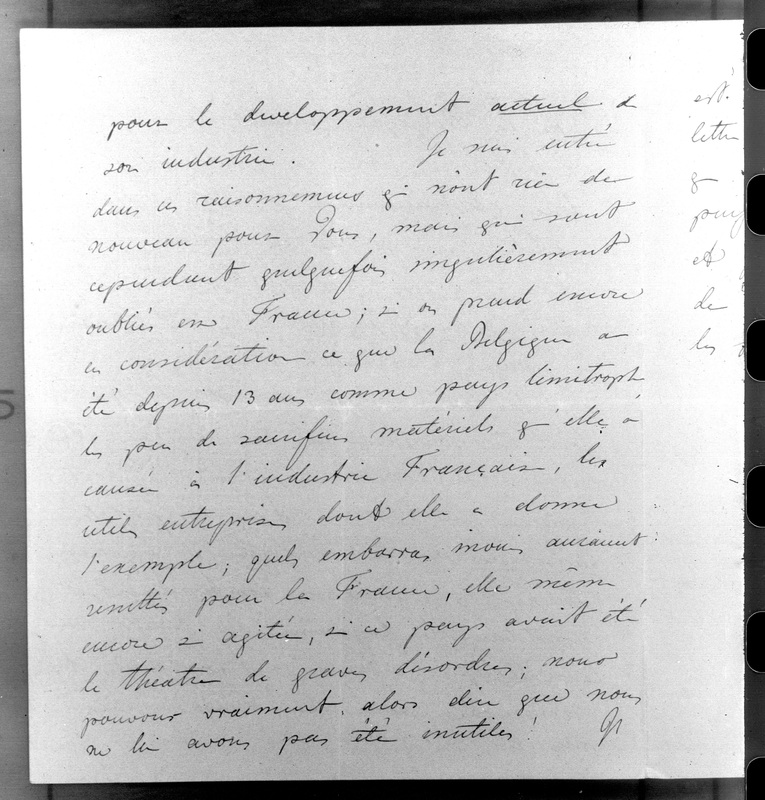 pour le developpement actuel d
son industrie. Je suis entré
dans ces raisonnemens qi n'ont rien de
nouveau pour Vous, mais qui sont
cependant quelquefois singulièrement
oubliés en France; si on prend encore
en considération ce que la Belgique a
été depuis 13 ans comme pays limitroph
les peu de sacrifices matériels q'elle a
causé à l'industrie Française, les
utiles entreprises dont elle a donné
l'exemple; quels embarras inouis auraient
resultés pour la France, elle même
encore si agitée, si ce pays avait été
le théatre de graves désordres; nous
pouvons vraiment alors dire que nous
ne lui avons pas été inutiles!
est
lettr
q
pays
et
de
les